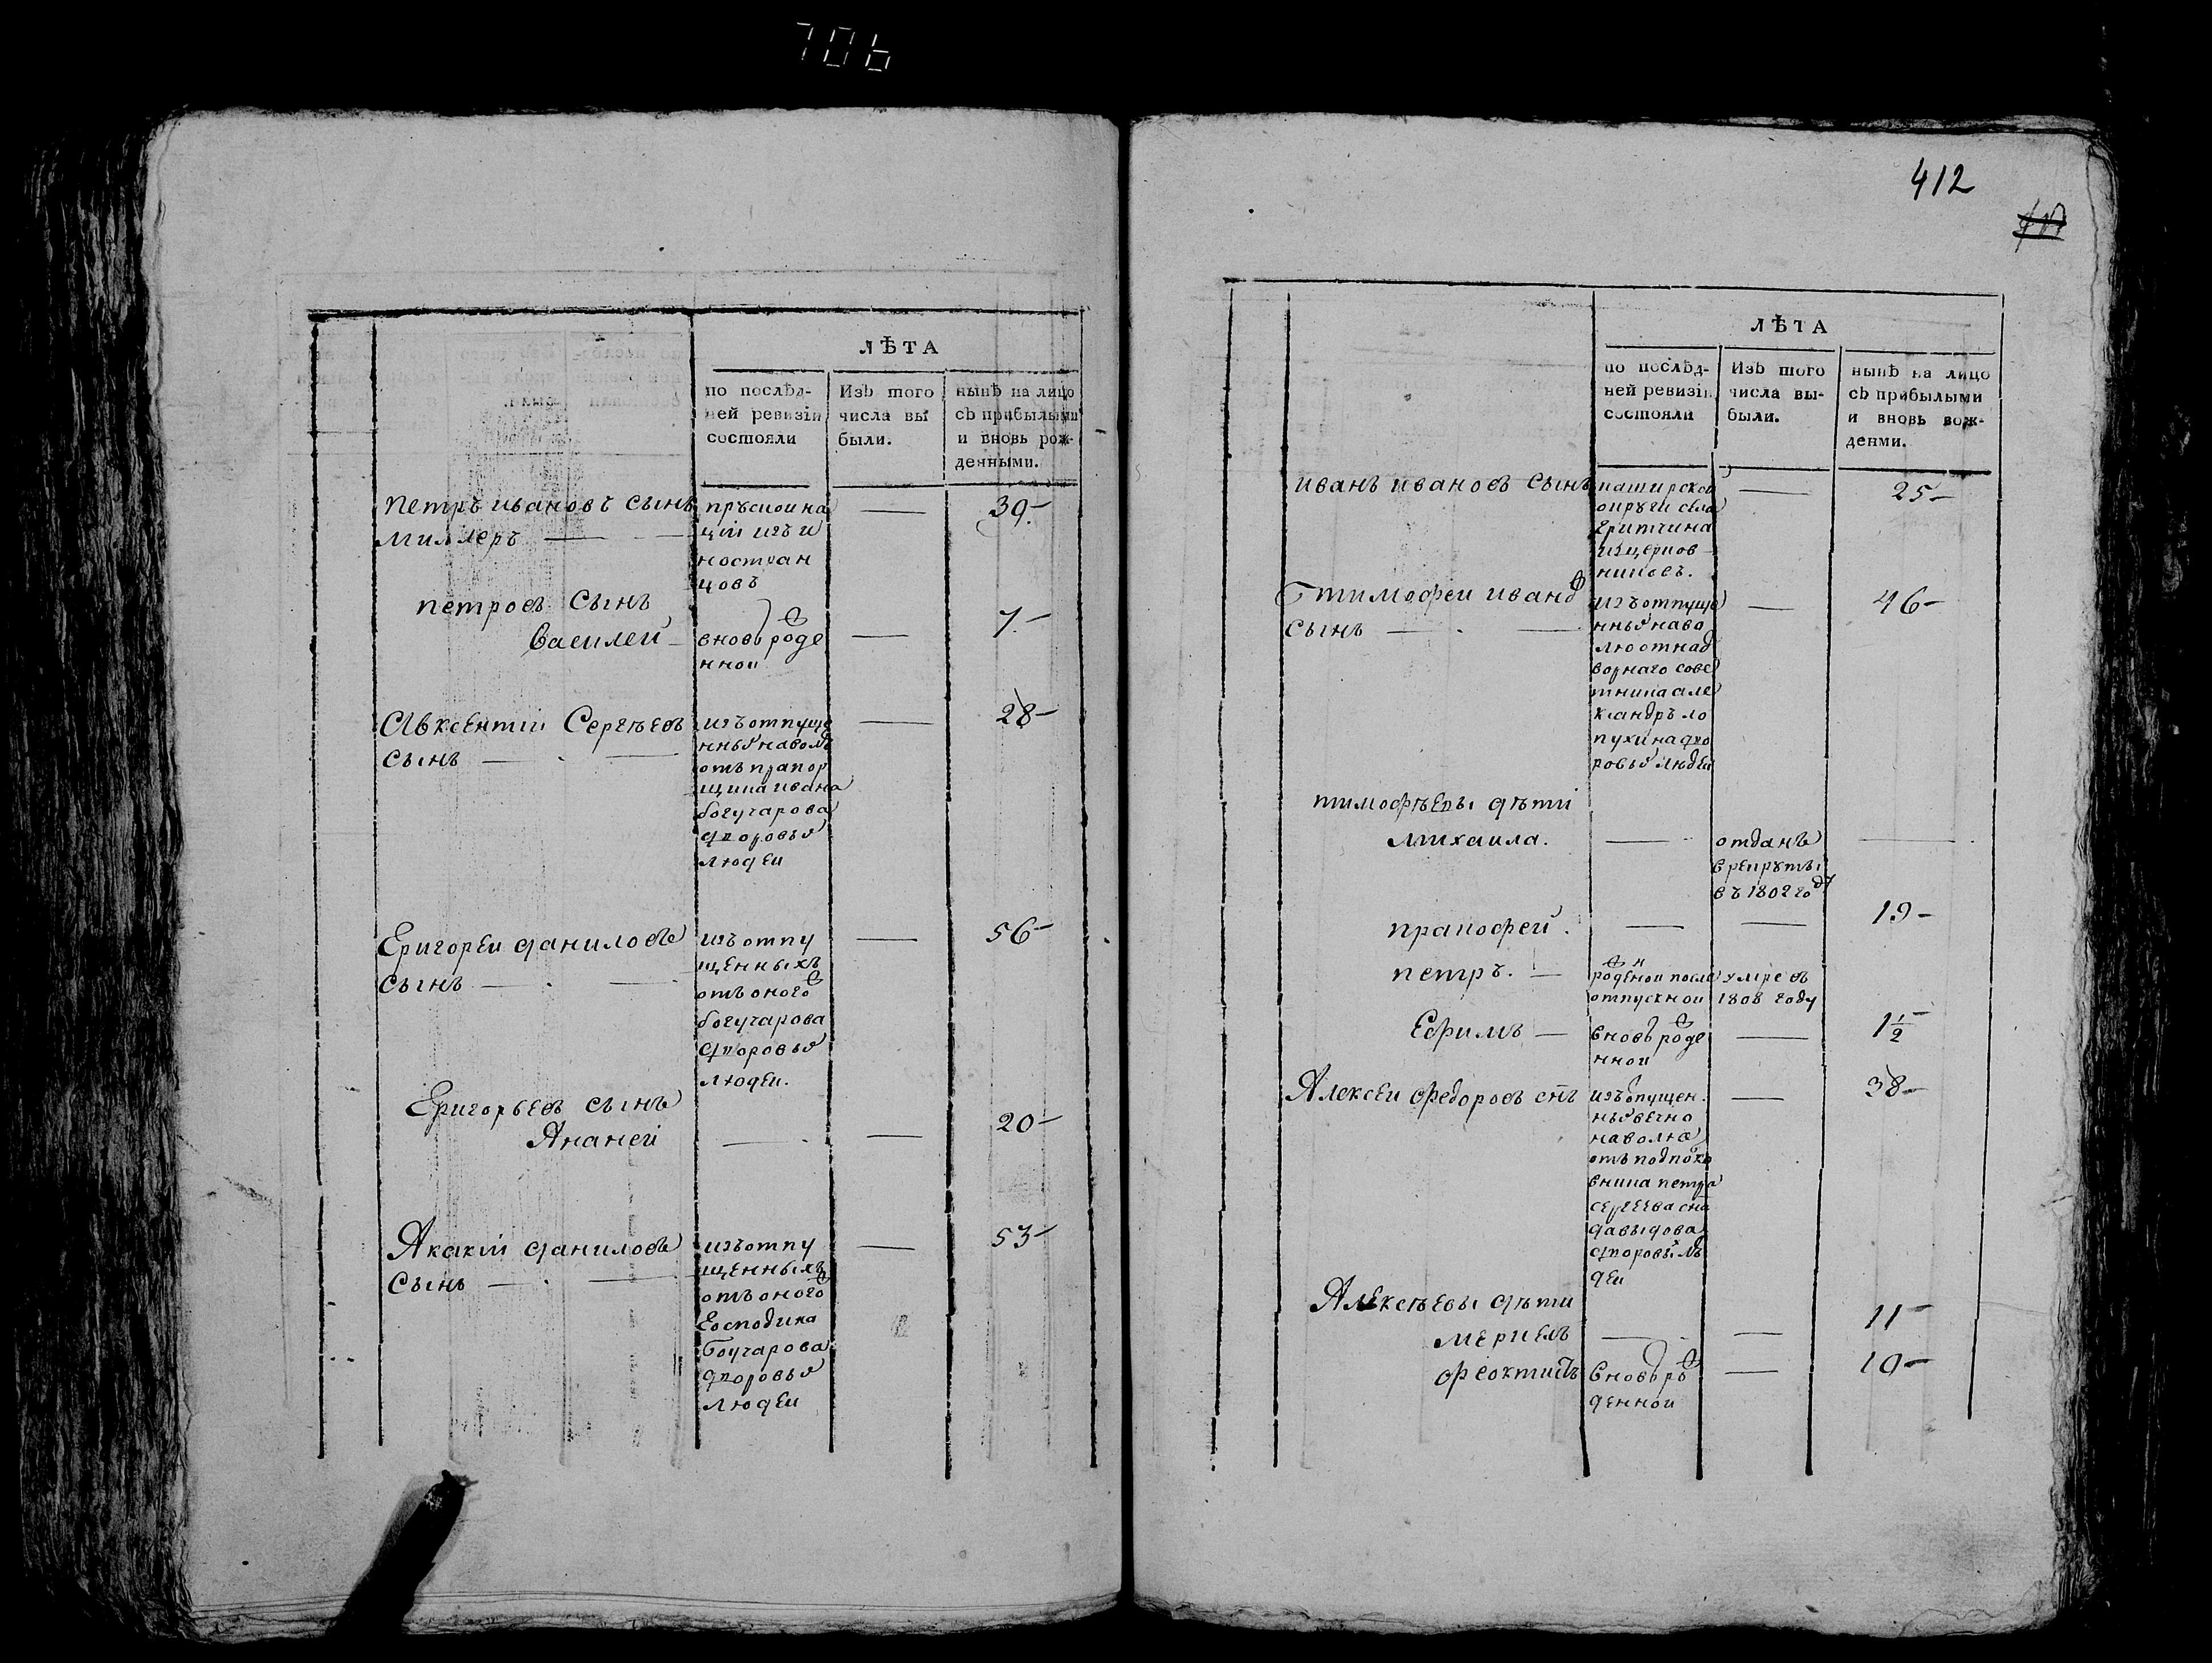 706
ЛѢТА
по послѣд-
ней ревизіи
состояли
Изъ того
числа вы
были.
нынѣ на лицо
съ прибылыми
и вновь рож-
денными.
петръ ивановъ сынъ
миллеръ
прускои на
ціи изъ и
ностран
цовъ
39
петровъ сынъ
василей
вновь роде
ннои
7
Авксентіи Сергѣевъ
сынъ
изъ отпуще
нныхъ наволю
отъ прапор
щика ивана
богучарова
дворовыхъ
людеи
28
Григореи даниловъ
сынъ
изъ отпу
щенныхъ
отъ оного
богучарова
дворовыхъ
людеи.
56
Григорьевъ сынъ
Ананеи
20
Акакіи даниловъ
сынъ
изъ отпу
щенныхъ
отъ оного
Господина
Боучарова
дворовыхъ
людеи
53
412
ЛѢТА
по послѣд-
ней ревизіи
состояли
Изъ того
числа вы-
были.
нынѣ на лицо
съ прибылыми
и вновь рож-
денми.
иванъ ивановъ сынъ
каширской
округи села
изцерков
никовъ.
25
тимофеи ивановъ
сынъ
изъ отпуще
нныхъ на во
лю от над
ворнаго сове
тника але
ксандръ ло
пухина дво
ровыхъ людеи
46
тимофѣевы дѣти
михаила.
отданъ
в рекруты
въ 1802 году
пракофей.
19
петръ.
роденнои после
отпускнои
умре въ
1808 году
Ефимъ
вновь роде
ннои
1 1/2
Алексеи федоровъ снъ
изъ опущен
ныхъ вечно
на волю
отъ подполко
вника петра
сергеева сна
давыдова
дворовыхъ лю
деи
38
Алексѣевы дѣти
меркелъ
11
феоктистъ
вновь ро
деннои
10